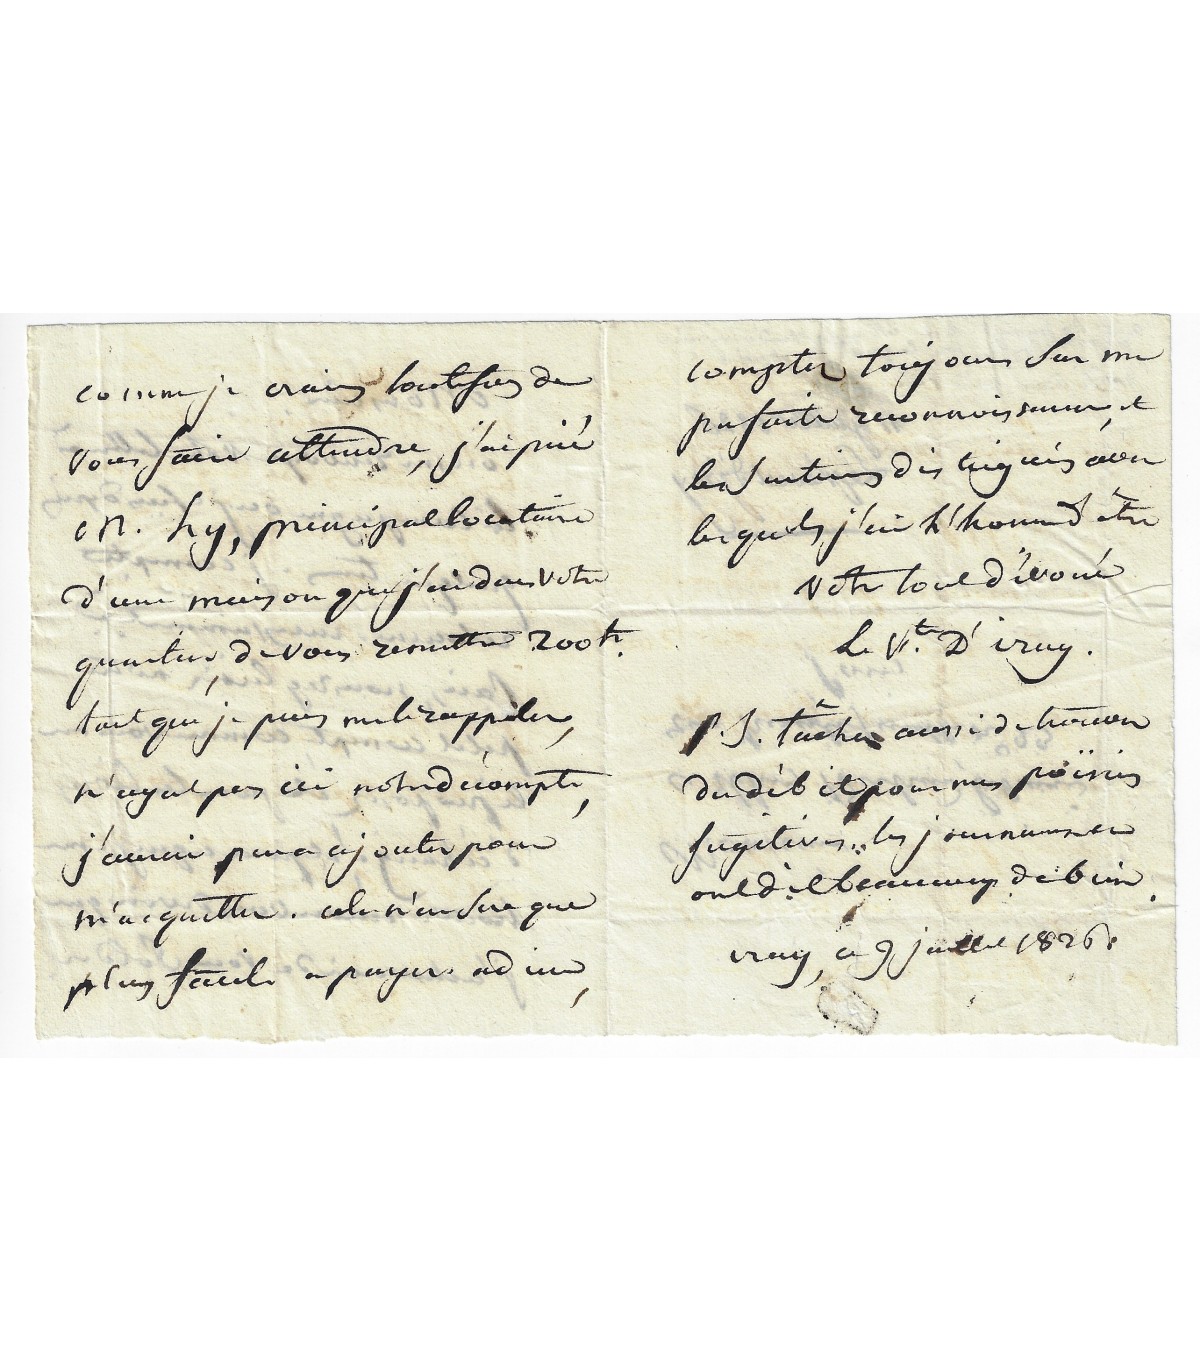 comme je crains toutesfois de
vous faire attendre, j'ai prié
M. hy, principal locataire
d'une maison que j'ai dans votre
quartier, de vous remettre 200 fr.
tant que je puis me le rappeler,
n'ayant pas ici notre décompte,
j'aurai peu a ajouter pour
m'acquitter. cela n'en sera que
plus facile a payer. adieu,
compter toujours sur ma
parfaite reconnoissance, et
les sentimens distingués avec
lesquels j'ai l'honneur d'être
votre tout dévoué
Le Vte. D'iray.
P. S. tâchez aussi de trouver
du débit pour mes poësies
fugitives.. les journaux en
ont dit beaucoup de bien.
iray, ce 9 juillet 1826.